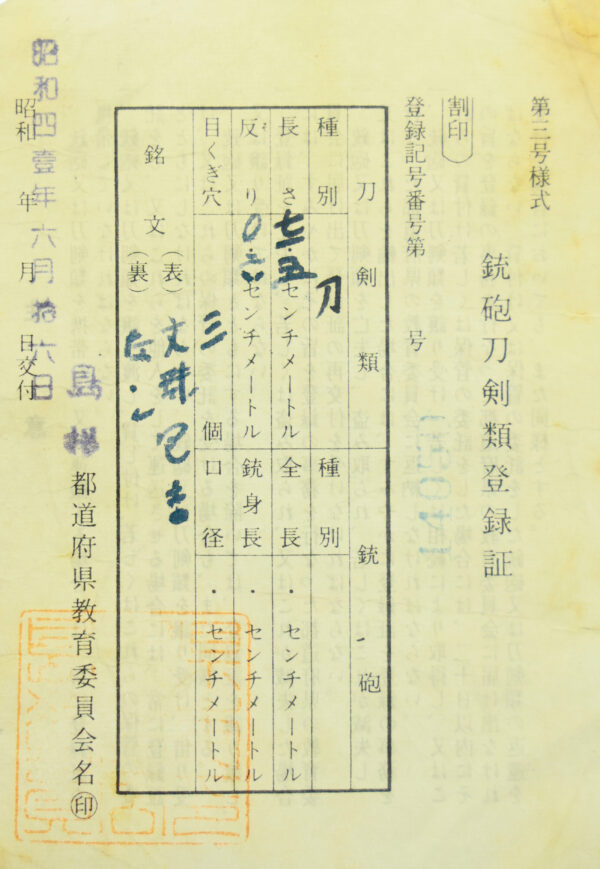 第二号様式
銃砲刀剣類登録証
割印
登録記号番号第 号
刀剣類
種別 刀
長さ 七一・五センチメートル
反り 〇・六センチメートル
目くぎ穴 三個
銘文
(表) 文珠包吉
(裏)
銃砲
種別
全長 ・ センチメートル
銃身長 ・ センチメートル
口径 ・ センチメートル
昭和 年 月 日交付
昭和四壹年六月拾六日
島根
都道府県教育委員会名 印